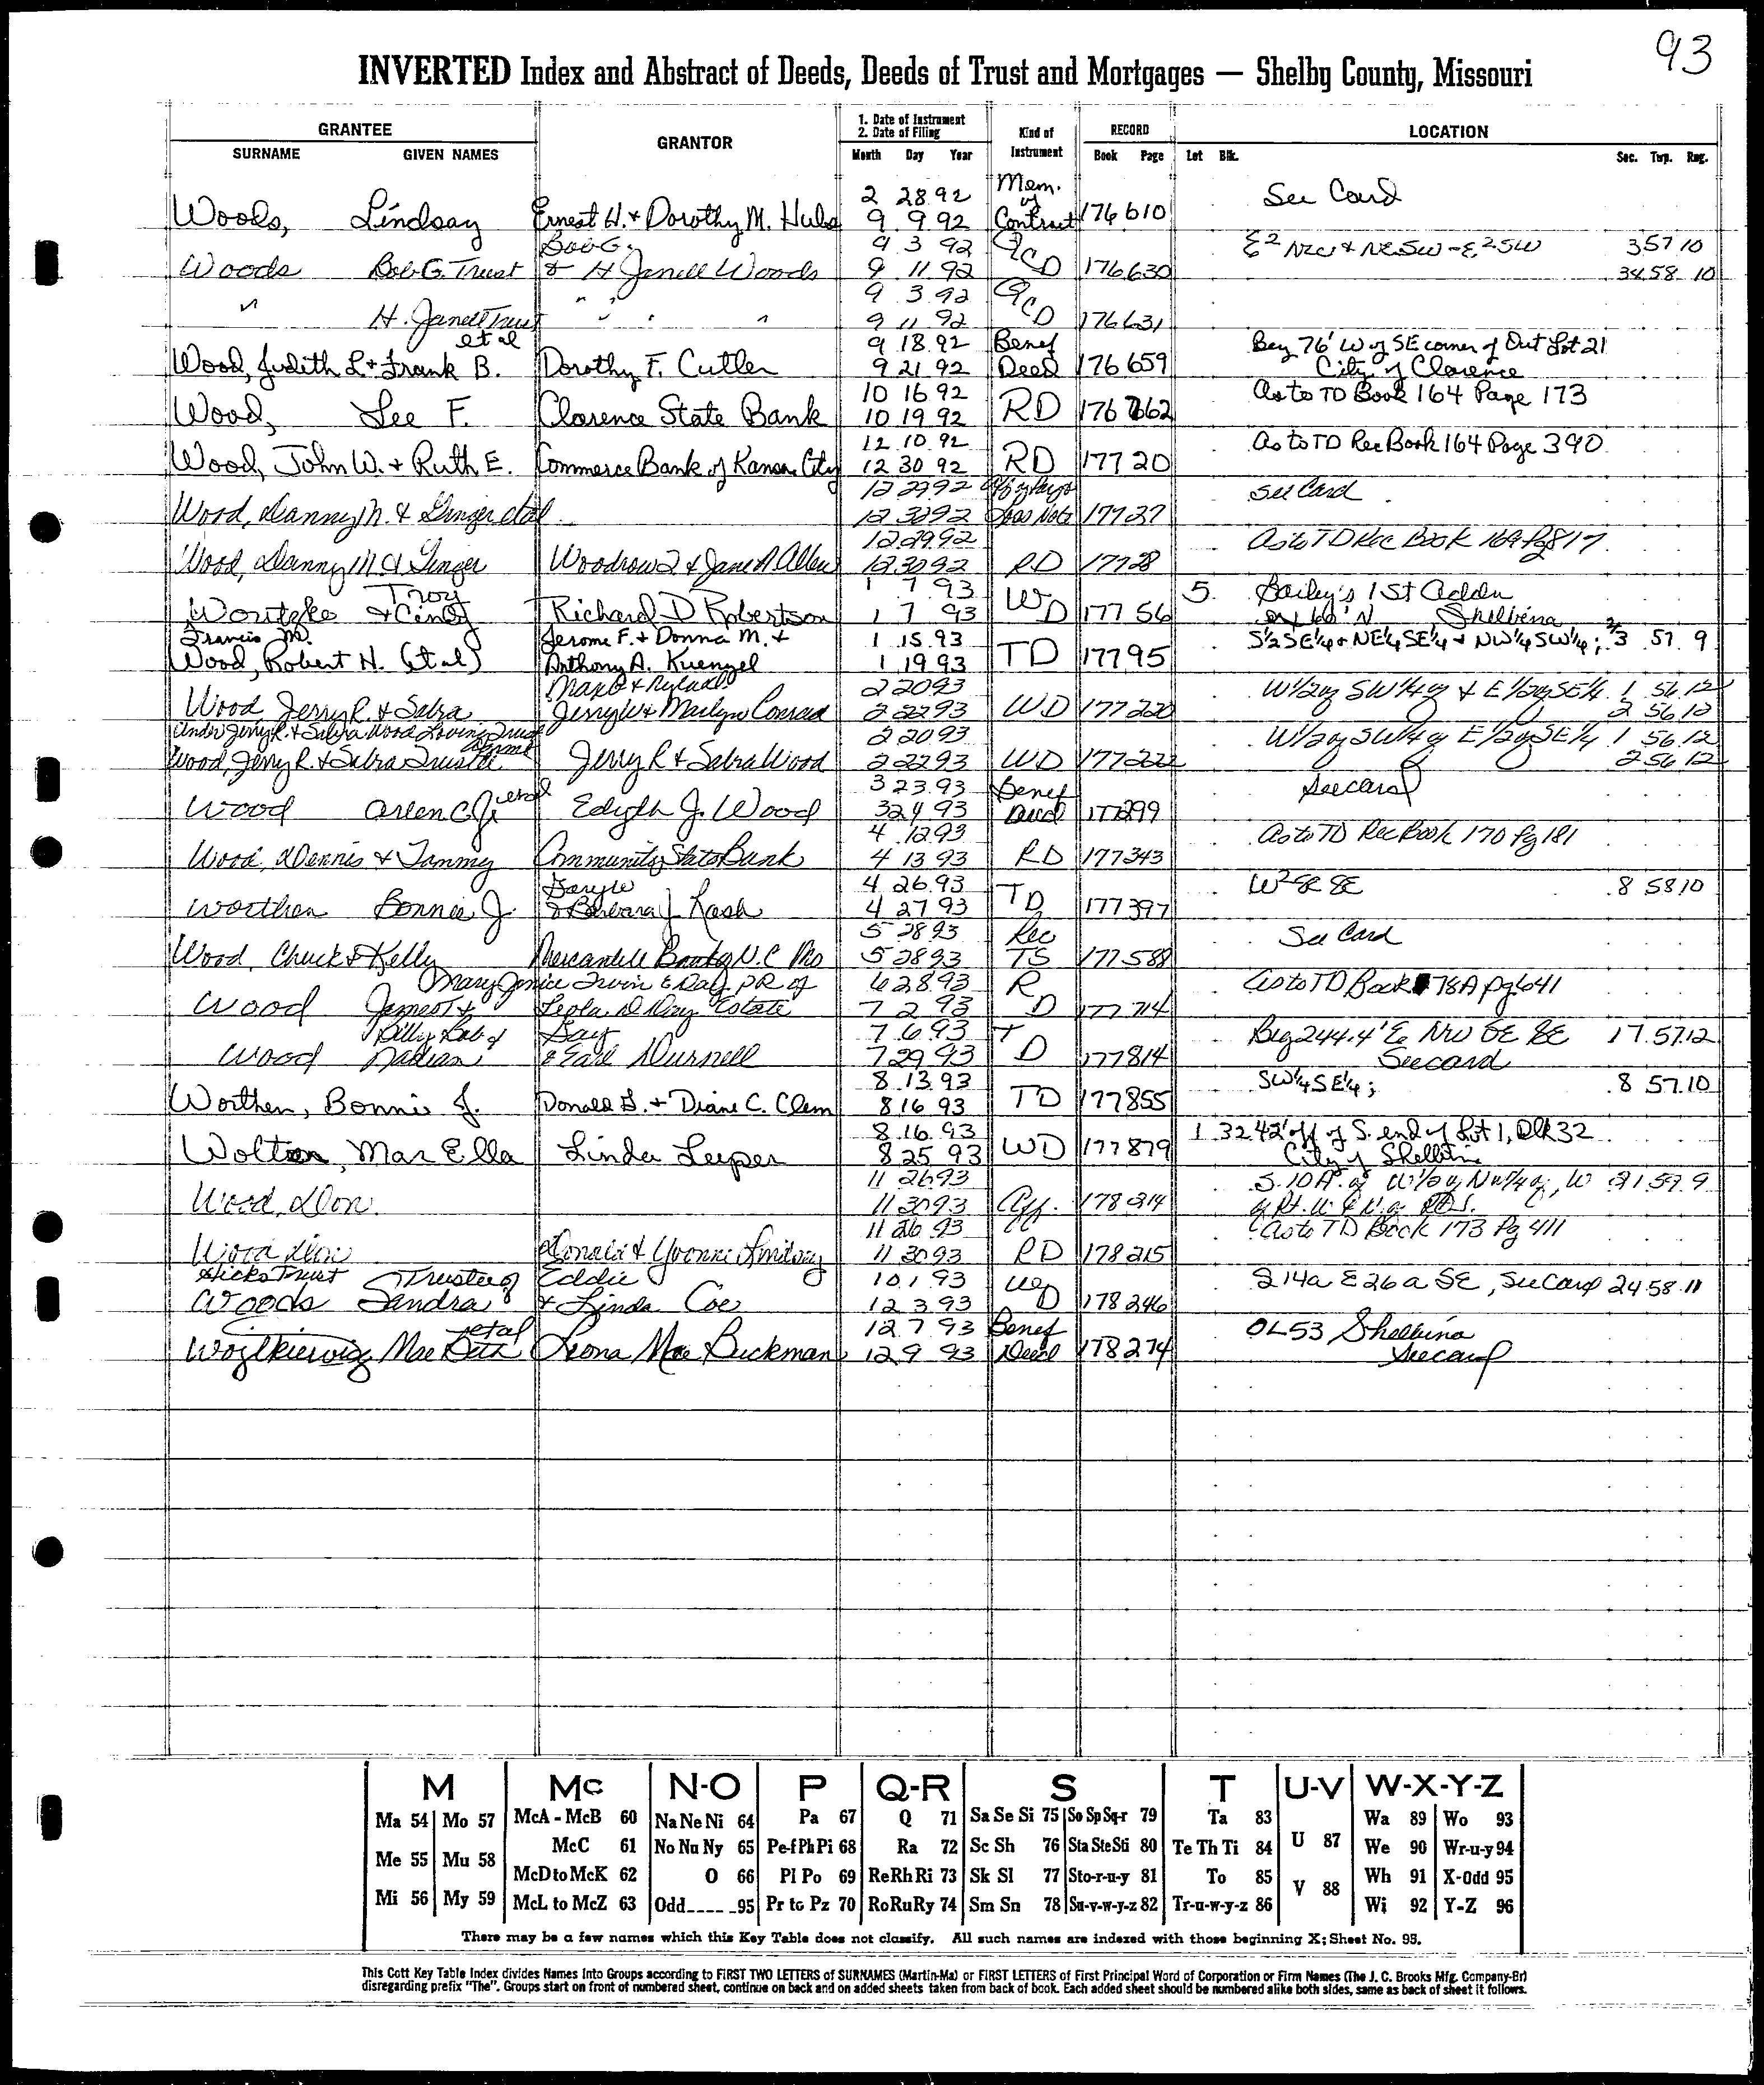 93
INVERTED Index and Abstract of Deeds, Deeds of Trust and Mortgages — Shelby County, Missouri
GRANTEE GRANTOR 1. Date of Instrument 2. Date of Filing Kind of Instrument RECORD LOCATION
SURNAME GIVEN NAMES Month Day Year Book Page Lot Blk. Sec. Twp. Rng.
2 28 92 Mem. of See Card
Woods, Lindsay Ernest H. + Dorothy M. 9 9 92 Contract 176 610
Bob G. 9 3 92 QCD E2 NW + NESW - E2SW 3 57 10
Woods Bob G. Trust & H Janell Woods 9 11 92 176 630 34 58 10
" " " 9 3 92 QCD
H. Janell Trust " " " 9 11 92 176 631
et al 9 18 92 Benef Beg 76' W of SE corner of Out Lot 21
Wood, Judith L. + Frank B. Dorothy F. Cutler 9 21 92 Deed 176 659 City of Clarence
10 16 92 As to TD Book 164 Page 173
Wood, Lee F. Clarence State Bank 10 19 92 RD 176 762
12 10 92 As to TD Rec Book 164 Page 390
Wood, John W. + Ruth E. Commerce Bank of Kansas City 12 30 92 RD 177 20
12 29 92 See Card
Wood, Danny M. & Ginger etal 12 30 92 Loss Note 177 27
12 29 92 As to TD Rec Book 169 Pg 817
Wood, Danny M. & Ginger Woodrow I. & Jane A Allen 12 30 92 RD 177 28
Troy 1 7 93 5 Bailey's 1st Addn
& Cindy Richard D Robertson 1 7 93 WD 177 56 ex 66' N Shelbina
Francis M. Jerome F. + Donna M. + 1 15 93 S½SE¼ + NE¼SE¼ + NW¼SW¼; 2/3 57 9
Wood, Robert H. (et al) Anthony A. Kuenzel 1 19 93 TD 177 95
2 20 93 W½ of SW¼ of & E½ of SE¼ 1 56 12
Wood Jerry R. & Sabra Jerry W & Marilyn Conrad 2 22 93 WD 177 220 2 56 12
Under Jerry R. & Sabra Wood Loving Trust 2 20 93 W½ of SW¼ of E½ of SE¼ 1 56 12
Wood, Jerry R. & Sabra Trustee Jerry R & Sabra Wood 2 22 93 WD 177 222 2 56 12
etal 3 23 93 Benef See card
Wood Arlen C Jr Edyth J. Wood 3 24 93 Deed 177 299
4 12 93 As to TD Rec Book 170 Pg 181
Wood, Dennis & Tammy Community State Bank 4 13 93 RD 177 343
4 26 93 W2 SE SE 8 58 10
Worthen Bonnie J. & Barbara J Kash 4 27 93 TD 177 397
5 28 93 Rec See Card
Wood, Chuck & Kelly Mercantile Bank of N.C Mo 5 28 93 TS 177 588
Mary Janice Irvin & Day PR of 6 28 93 R As to TD Book 78A pg 641
Wood James T & Leola D Day Estate 7 2 93 D 177 714
7 6 93 T Beg 244.4' E NW SE SE 17 57 12
Wood & Earl Durnell 7 29 93 D 177 814 See card
8 13 93 SW¼SE¼; 8 57 10
Worthen, Bonnie J. Donald G. + Diane C. Clem 8 16 93 TD 177 855
8 16 93 1 32 42' off of S. end of Lot 1, Blk 32
Wolton, Mar Ella Linda Leeper 8 25 93 WD 177 879 City of Shelbina
11 26 93 S. 10 A. of W½ of NW¼ of, W 21 59 9
Wood, Don. 11 30 93 Aff. 178 214
11 26 93 As to TD Book 173 Pg 411
Wood Don Donald & Yvonne Lindsay 11 30 93 RD 178 215
Hicks Trust Trustee of Eddie 10 1 93 S 14a E 26 a SE, See Card 24 58 11
Woods Sandra & Linda Coe 12 3 93 WD 178 246
etal 12 7 93 Benef OL53 Shelbina
Wojtkiewicz Mae Beth Leona Mae Buckman 12 9 93 Deed 178 274 See card
M Mc N-O P Q-R S T U-V W-X-Y-Z
Ma 54 Mo 57 McA - McB 60 Na Ne Ni 64 Pa 67 Q 71 Sa Se Si 75 So Sp Sq-r 79 Ta 83 U 87 Wa 89 Wo 93
Me 55 Mu 58 McC 61 No Nu Ny 65 Pe-f Ph Pi 68 Ra 72 Sc Sh 76 Sta Ste Sti 80 Te Th Ti 84 We 90 Wr-u-y 94
McD to McK 62 O 66 Pl Po 69 Re Rh Ri 73 Sk Sl 77 Sto-r-u-y 81 To 85 V 88 Wh 91 X-Odd 95
Mi 56 My 59 McL to McZ 63 Odd---- -95 Pr to Pz 70 Ro Ru Ry 74 Sm Sn 78 Su-v-w-y-z 82 Tr-u-w-y-z 86 Wi 92 Y-Z 96
There may be a few names which this Key Table does not classify. All such names are indexed with those beginning X; Sheet No. 95.
This Cott Key Table Index divides Names Into Groups according to FIRST TWO LETTERS of SURNAMES (Martin-Ma) or FIRST LETTERS of First Principal Word of Corporation or Firm Names (The J. C. Brooks Mfg. Company-Br)
disregarding prefix "The". Groups start on front of numbered sheet, continue on back and on added sheets taken from back of book. Each added sheet should be numbered alike both sides, same as back of sheet it follows.